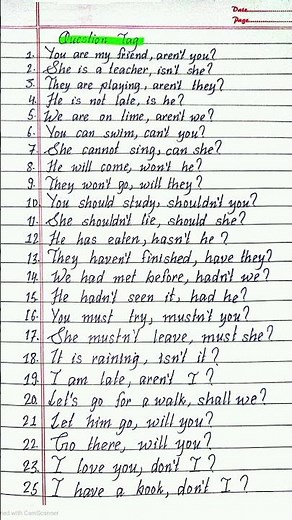 Date
Page
Question Tag
1. You are my friend, aren't you?
2. She is a teacher, isn't she?
3. They are playing, aren't they?
4. He is not late, is he?
5. We are on time, aren't we?
6. You can swim, can't you?
7. She cannot sing, can she?
8. He will come, won't he?
9. They won't go, will they?
10. You should study, shouldn't you?
11. She shouldn't lie, should she?
12. He has eaten, hasn't he?
13. They haven't finished, have they?
14. We had met before, hadn't we?
15. He hadn't seen it, had he?
16. You must try, mustn't you?
17. She mustn't leave, must she?
18. It is raining, isn't it?
19. I am late, aren't I?
20. Let's go for a walk, shall we?
21. Let him go, will you?
22. Go there, will you?
23. I love you, don't I?
25. I have a book, don't I?
ned with CamScanner